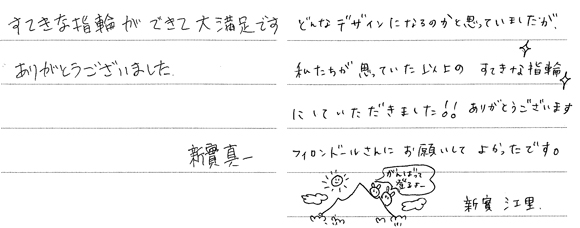 すてきな指輪ができて大満足です
ありがとうございました。
新實真一
どんなデザインになるのかと思っていましたが、
私たちが思っていた以上のすてきな指輪
にしていただきました!! ありがとうございます
フィロンドールさんにお願いしてよかったです。
がんばって
登るよー
新實 江里.